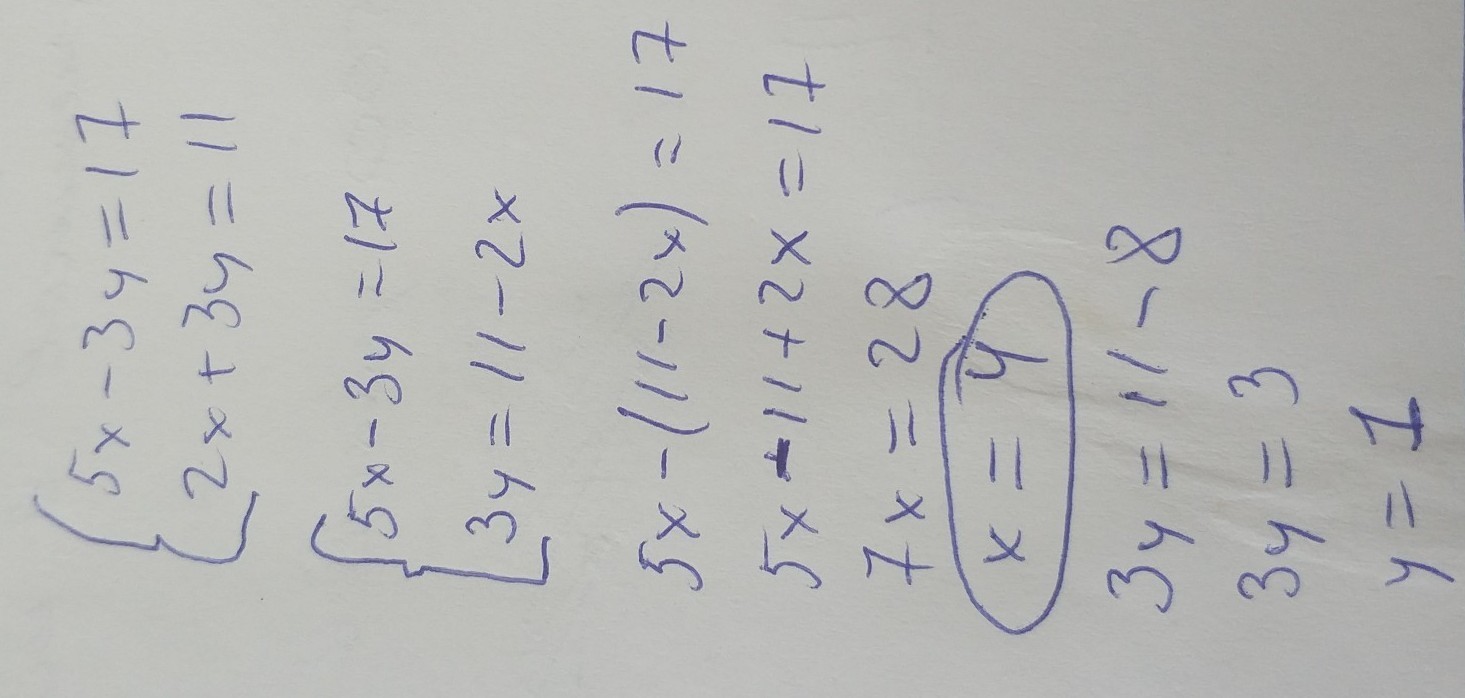 5x-3y=17
2x+3y=11
5x-3y=17
3y=11-2x
5x-(11-2x)=17
5x-11+2x=17
7x=28
x=4
3y=11-8
3y=3
y=1